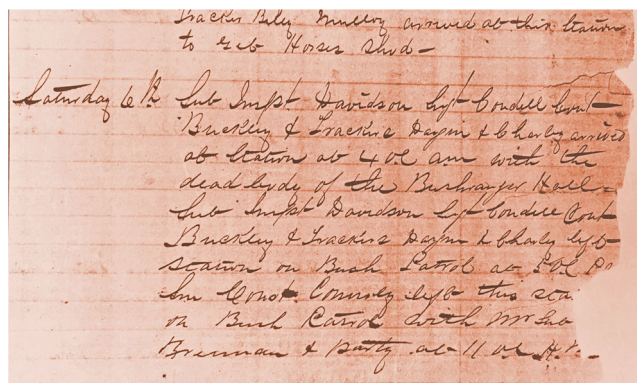 Tracker Billy arrived at this Station
to Get Horses Shod -
Saturday 6th Sub Inspt Davidson Sgt Condell Const
Buckley & Trackers & Charley arrived
at Station at 4 O.C. am with the
dead body of the Bushranger Hall -
Sub Inspt Davidson Sgt Condell Const
Buckley & Trackers & Charley left
Station on Bush Patrol at
Const. left this Sta
on Bush Patrol with Mr Sub
Brennan & Party at 11 O.C.